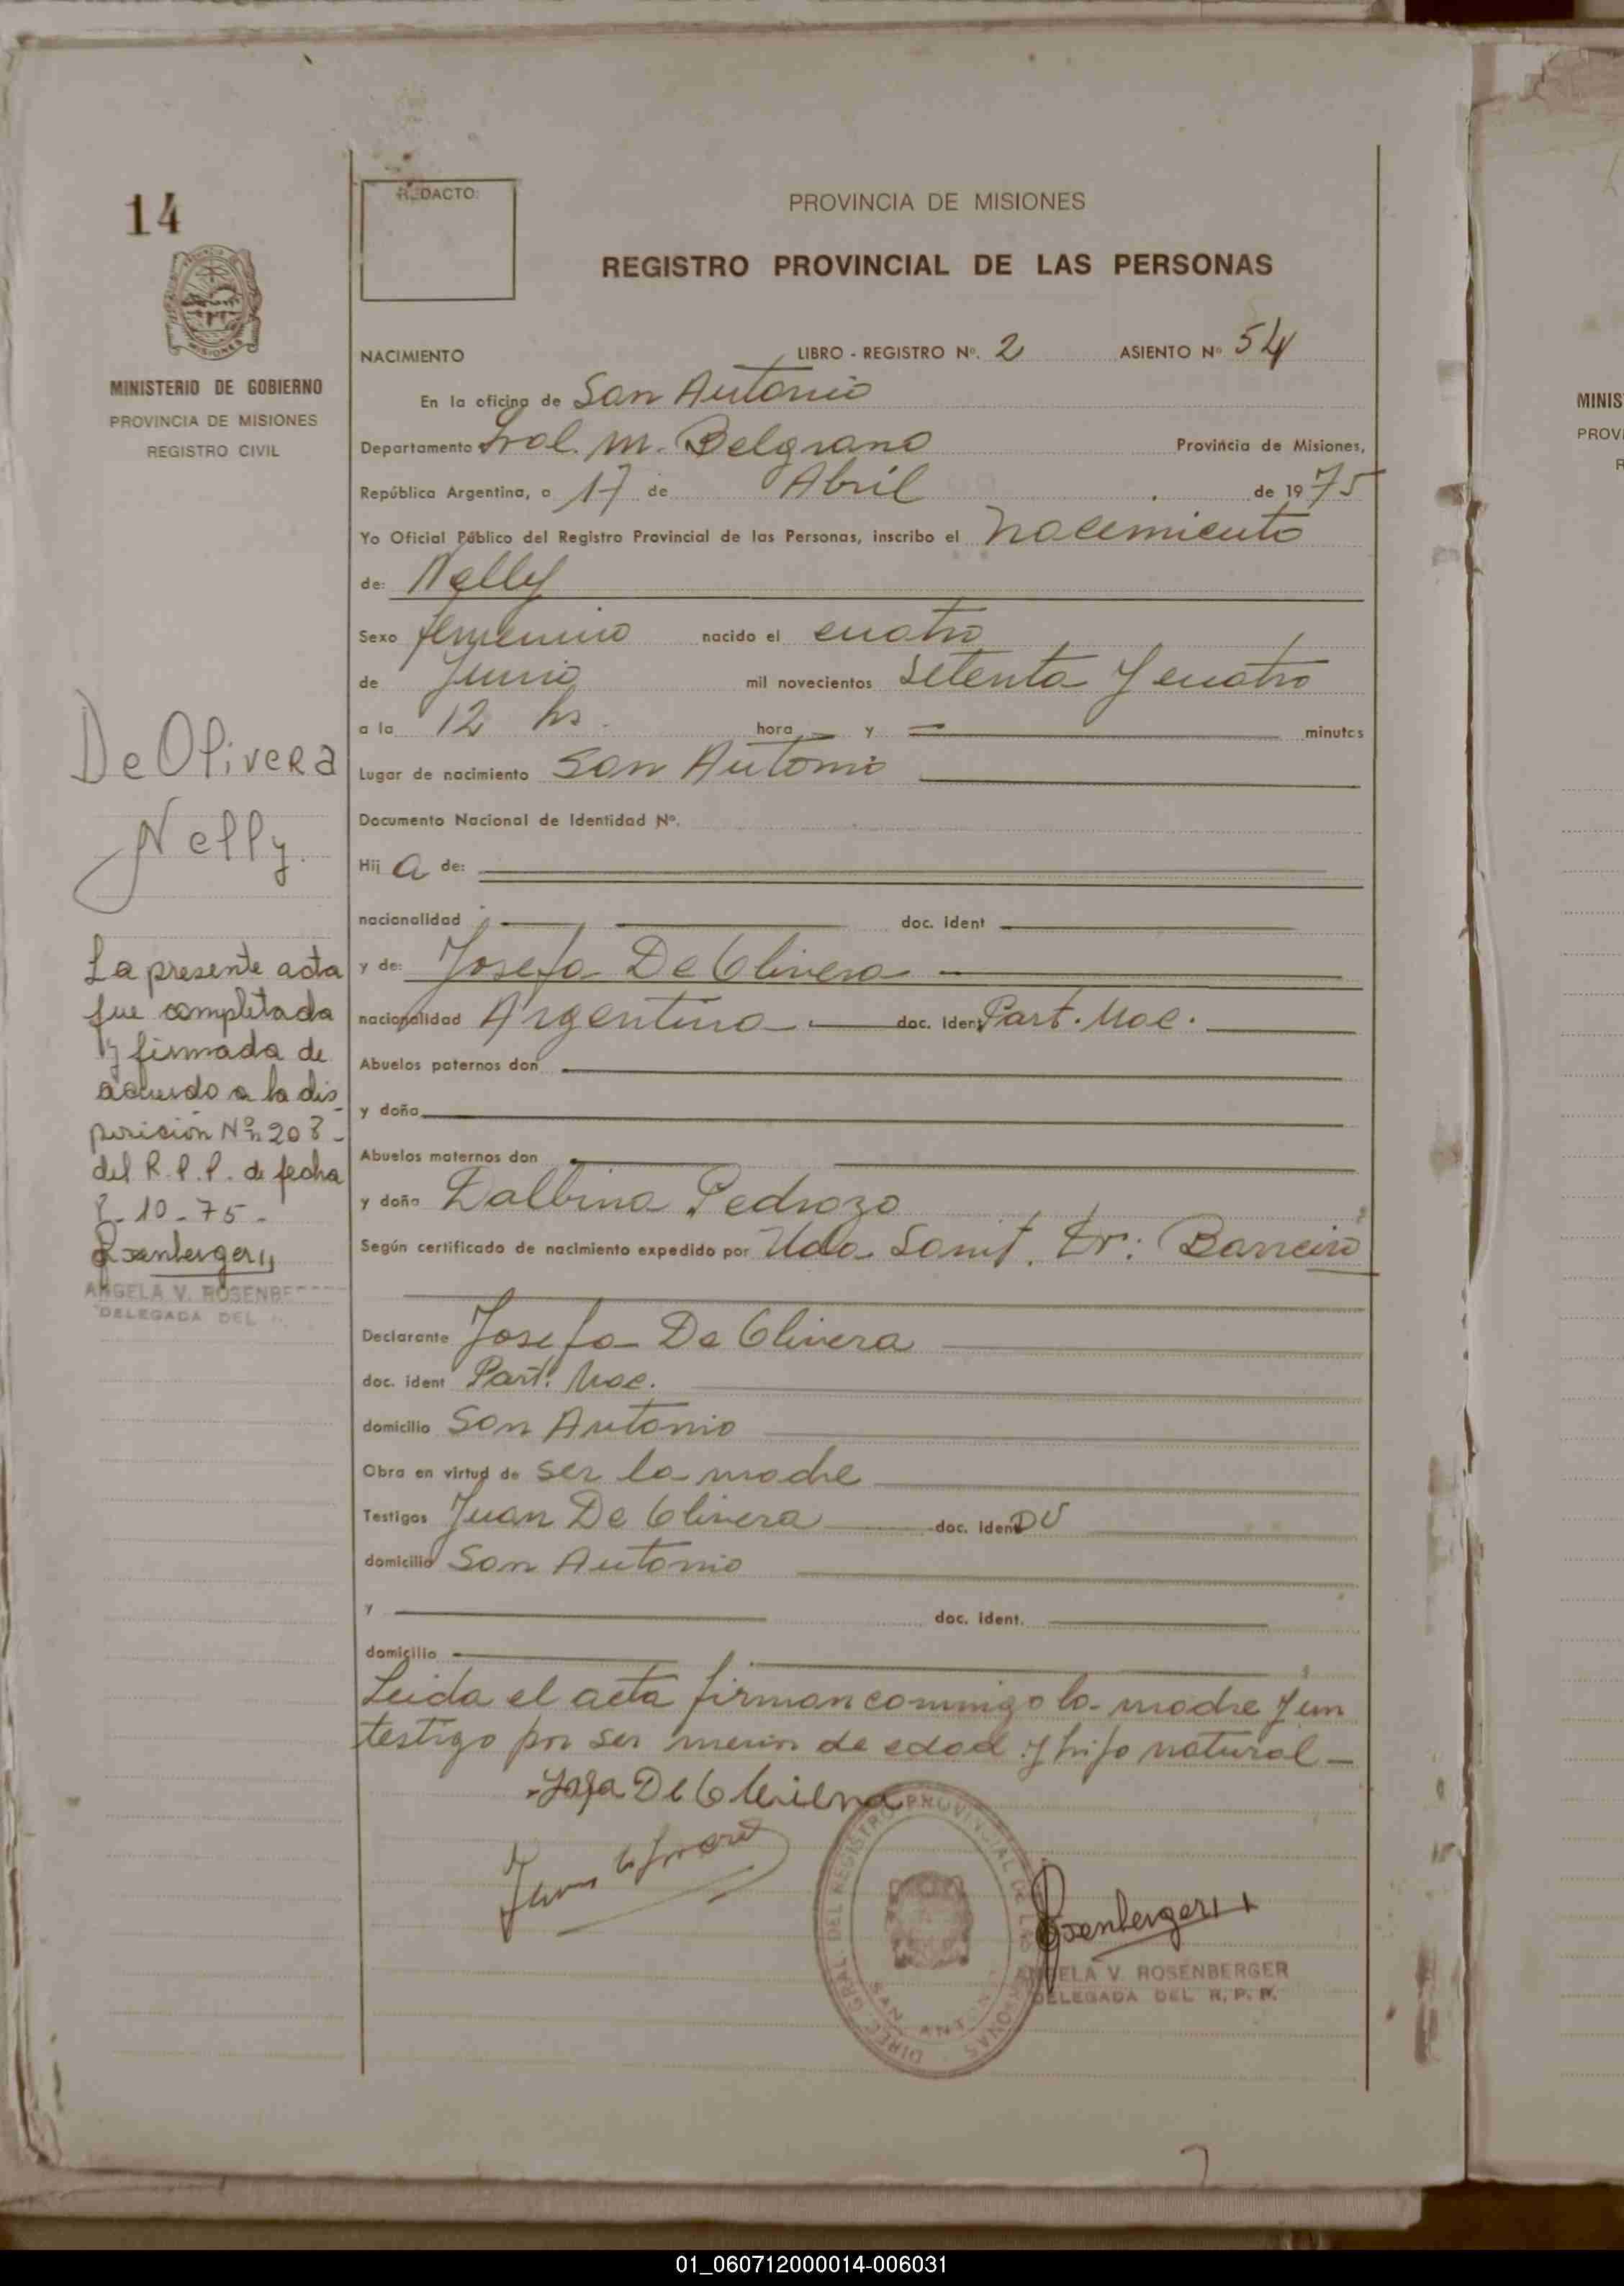 14
REDACTO:
PROVINCIA DE MISIONES
REGISTRO PROVINCIAL DE LAS PERSONAS
MISIONES
MINISTERIO DE GOBIERNO
PROVINCIA DE MISIONES
REGISTRO CIVIL
NACIMIENTO LIBRO - REGISTRO Nº. 2 ASIENTO Nº 54
En la oficina de San Antonio
Departamento Gral. M. Belgrano Provincia de Misiones,
República Argentina, a 17 de Abril de 1975
Yo Oficial Público del Registro Provincial de las Personas, inscribo el nacimiento
de: Nelly
Sexo femenino nacido el cuatro
de Junio mil novecientos setenta y cuatro
a la 12 hs. hora y minutos
Lugar de nacimiento San Antonio
Documento Nacional de Identidad Nº.
Hij a de:
nacionalidad doc. ident
y de: Josefa De Olivera
nacionalidad Argentina doc. ident Part. Nac.
Abuelos paternos don
y doña
Abuelos maternos don
y doña Dalbina Pedrozo
Según certificado de nacimiento expedido por Uda Sanit. Dr: Barreiro
Declarante Josefa De Olivera
doc. ident Part. Nac.
domicilio San Antonio
Obra en virtud de ser la madre
Testigos Juan De Olivera doc. Ident DU
domicilio San Antonio
y doc. ident.
domicilio
Leida el acta firman conmigo la madre y un
testigo por ser menor de edad y hijo natural -
De Olivera
Nelly.
La presente acta
fue completada
y firmada de
acuerdo a la dis
posición Nº 208-
del R.P.P. de fecha
8-10-75-
Rosenberger
ANGELA V. ROSENBE
DELEGADA DEL
DIREC. GRAL DEL REGISTRO PROVINCIAL DE LAS PERSONAS
SAN ANTONIO
Rosenberger
ANGELA V. ROSENBERGER
DELEGADA DEL R. P. P.
MINIS
PROVI
R
01_060712000014-006031